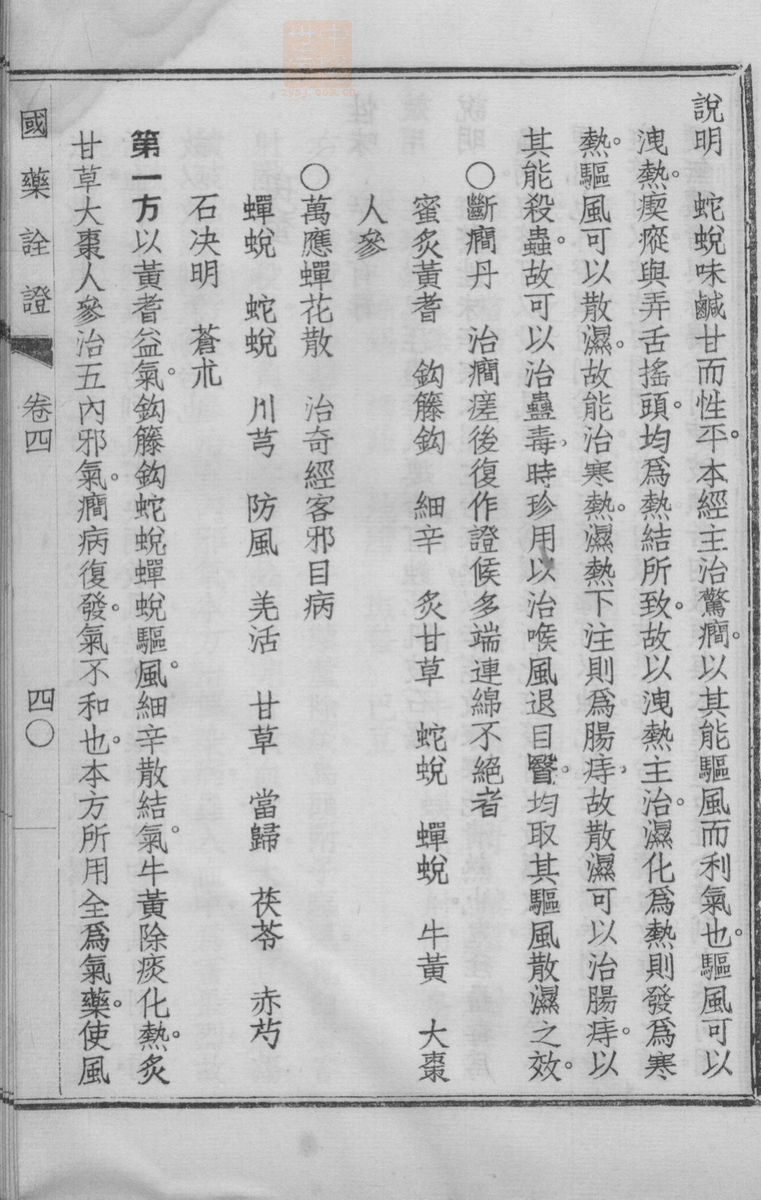 說明　蛇蛻味鹹甘而性平。本經主治驚癇。以其能驅風而利氣也。驅風可以
洩熱。瘈瘲與弄舌搖頭。均爲熱結所致。故以洩熱主治。濕化爲熱則發爲寒
熱。驅風可以散濕。故能治寒熱。濕熱下注則爲腸痔，故散濕可以治腸痔。以
其能殺蟲。故可以治蠱毒，時珍用以治喉風退目醫。均取其驅風散濕之效。
〇斷癇丹　治癇瘥後復作證候多端連綿不絕者
蜜炙黃耆　鈎籐鈎　細辛　炙甘草　蛇蛻　蟬蛻　牛黃　大棗
人參
〇萬應蟬花散　治奇經客邪目病
蟬蛻　蛇蛻　川芎　防風　羌活　甘草　當歸　茯苓　赤芍
石決明　蒼朮
第一方以黃耆益氣。鈎籐鈎蛇蛻蟬蛻驅風。細辛散結氣。牛黃除痰化熱。炙
甘草大棗人參治五內邪氣。癇病復發。氣不和也。本方所用全爲氣藥。使風
國藥詮證　卷四　四〇